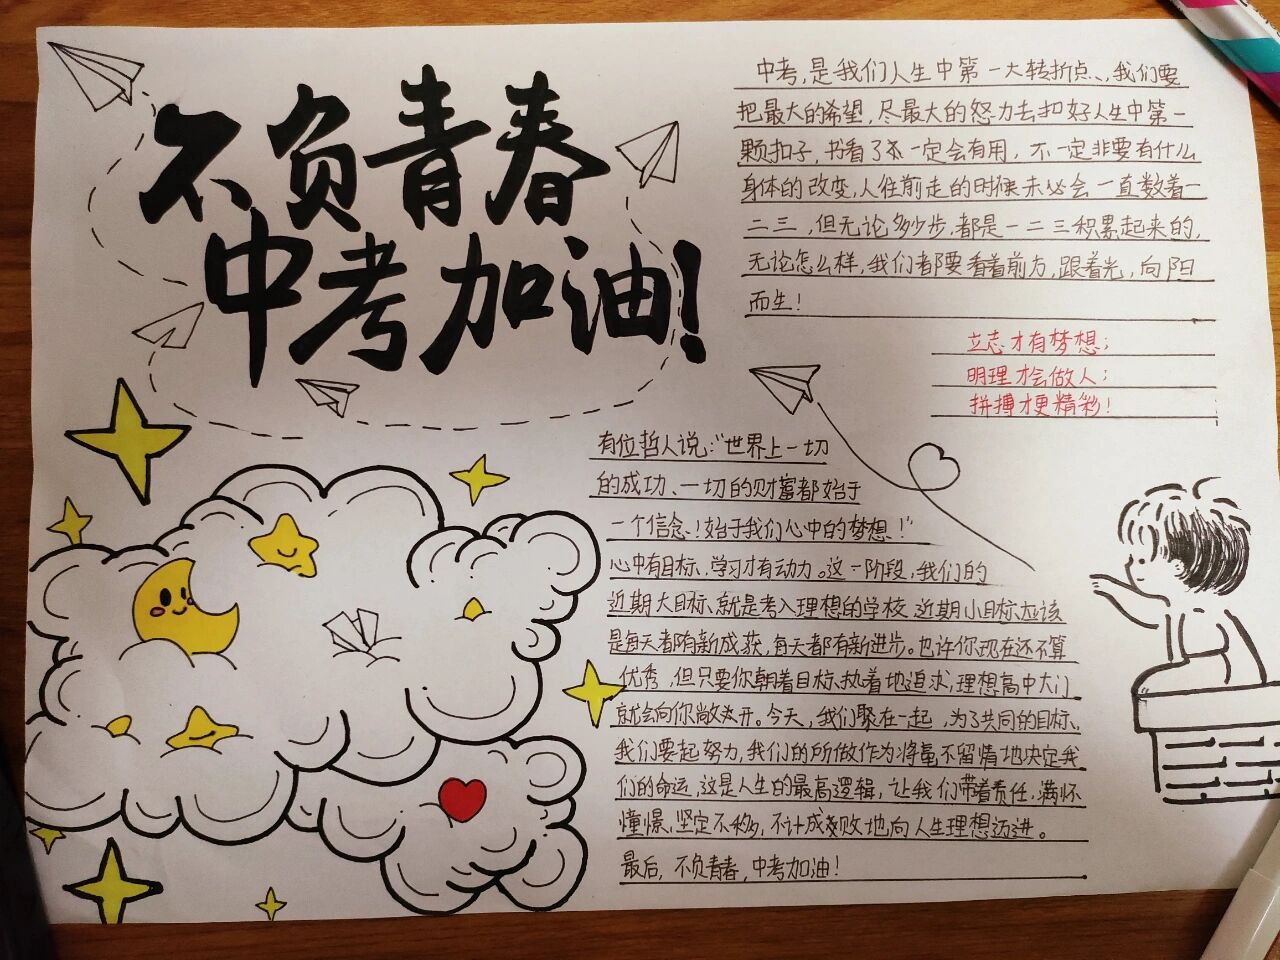 不负青春
中考加油!
中考,是我们人生中第一大转折点、,我们要
把最大的希望,尽最大的努力去扣好人生中第一
颗扣子,书看了不一定会有用,不一定非要有什么
身体的改变,人往前走的时候未必会一直数着一
二三,但无论多少步,都是一二三积累起来的,
无论怎么样,我们都要看着前方,跟着光,向阳
而生!
立志才有梦想;
明理才会做人;
拼搏才更精彩!
有位哲人说:“世界上一切
的成功、一切的财富都始于
一个信念!始于我们心中的梦想!”
心中有目标,学习才有动力。这一阶段,我们的
近期大目标、就是考入理想的学校,近期小目标应该
是每天都有新成获,每天都有新进步。也许你现在还不算
优秀,但只要你朝着目标、执着地追求,理想高中大门
就会向你敞开。今天,我们聚在一起,为了共同的目标、
我们要起努力,我们的所做作为将毫不留情地决定我
们的命运,这是人生的最高逻辑,让我们带着责任,满怀
憧憬、坚定不移,不计成败地向人生理想迈进。
最后,不负青春,中考加油!